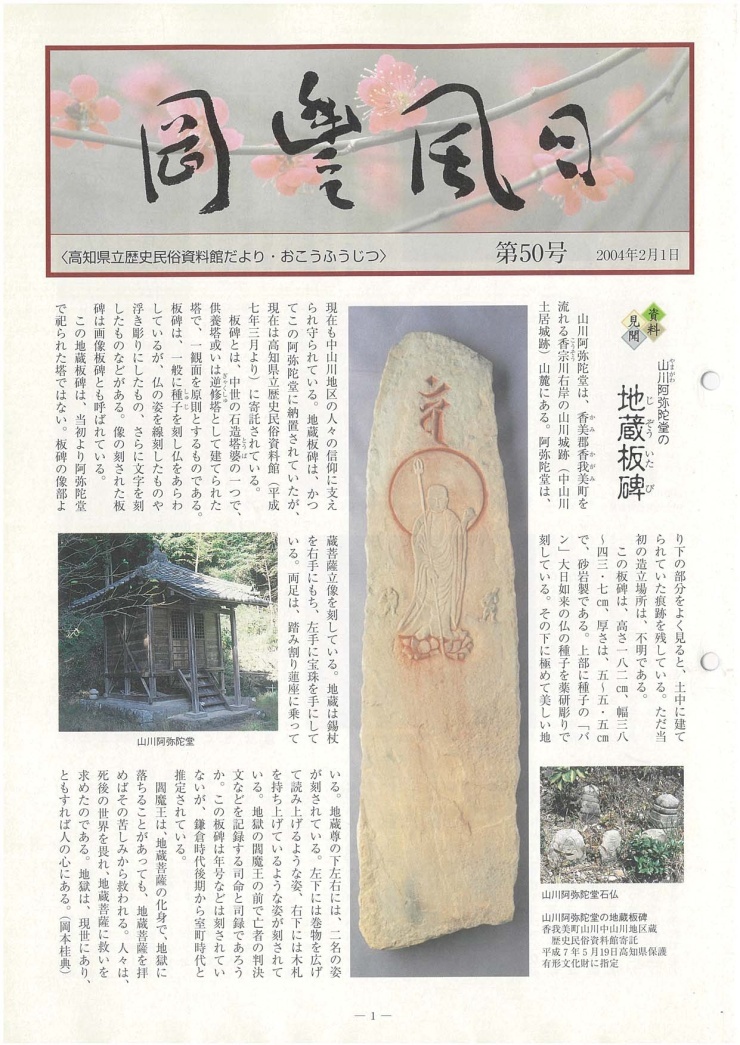 岡豊風日
〈高知県立歴史民俗資料館だより・おこうふうじつ〉
第50号
2004年2月1日
資料
見聞
山川阿弥陀堂の
やまがわ
地蔵板碑
じぞういたび
山川阿弥陀堂は、香美郡香我美町を
流れる香宗川右岸の山川城跡（中山川
土居城跡）山麓にある。阿弥陀堂は、
現在も中山川地区の人々の信仰に支え
られ守られている。地蔵板碑は、かつ
てこの阿弥陀堂に納置されていたが、
現在は高知県立歴史民俗資料館（平成
七年三月より）に寄託されている。
板碑とは、中世の石造塔婆の一つで、
供養塔或いは逆修塔として建てられた
塔で、一観面を原則とするものである。
板碑は、一般に種子を刻し仏をあらわ
しているが、仏の姿を線刻したものや
浮き彫りにしたもの、さらに文字を刻
したものなどがある。像の刻された板
碑は画像板碑とも呼ばれている。
この地蔵板碑は、当初より阿弥陀堂
で祀られた塔ではない。板碑の像部よ
り下の部分をよく見ると、土中に建て
られていた痕跡を残している。ただ当
初の造立場所は、不明である。
この板碑は、高さ一八二㎝、幅三八
～四三・七㎝、厚さは、五～五・五㎝
で、砂岩製である。上部に種子の「バ
ン」大日如来の仏の種子を薬研彫りで
刻している。その下に極めて美しい地
蔵菩薩立像を刻している。地蔵は錫杖
を右手にもち、左手に宝珠を手にして
いる。両足は、踏み割り蓮座に乗って
いる。地蔵尊の下左右には、二名の姿
が刻されている。左下には巻物を広げ
て読み上げるような姿、右下には木札
を持ち上げているような姿が刻されて
いる。地獄の閻魔王の前で亡者の判決
文などを記録する司命と司録であろう
か。この板碑は年号などは刻されてい
ないが、鎌倉時代後期から室町時代と
推定されている。
閻魔王は、地蔵菩薩の化身で、地獄に
落ちることがあっても、地蔵菩薩を拝
めばその苦しみから救われる。人々は、
死後の世界を畏れ、地蔵菩薩に救いを
求めたのである。地獄は、現世にあり、
ともすれば人の心にある。（岡本桂典）
山川阿弥陀堂
山川阿弥陀堂石仏
山川阿弥陀堂の地蔵板碑
香我美町山川中山川地区蔵
歴史民俗資料館寄託
平成７年５月19日高知県保護
有形文化財に指定
― 1 ―